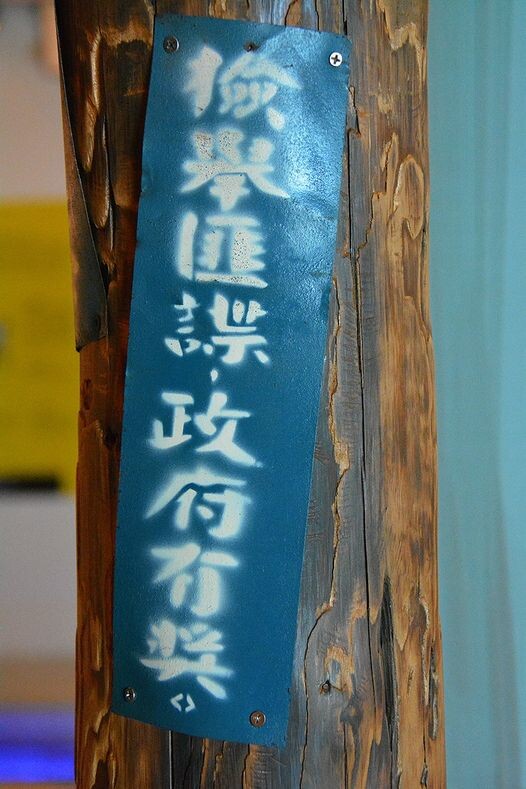 檢舉匪諜，政府有獎。